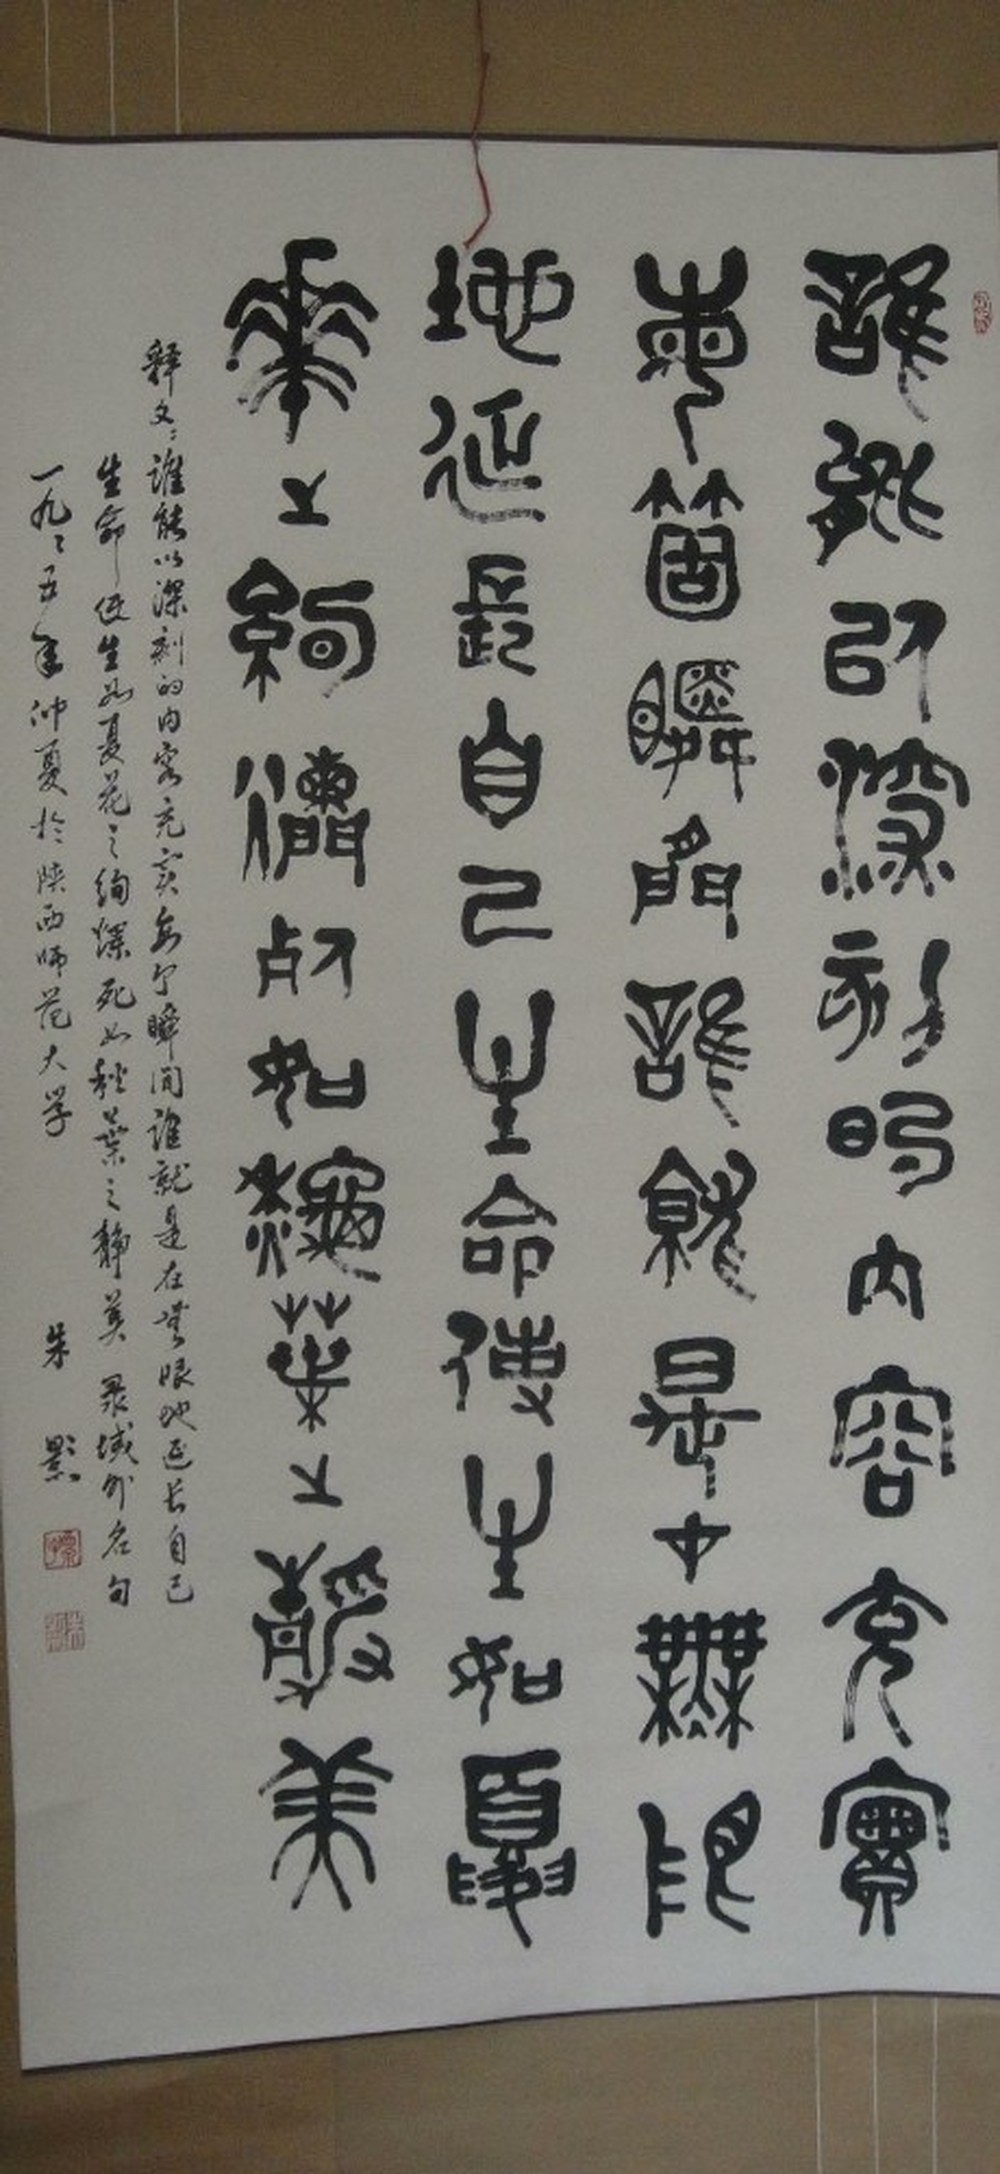 誰能以深刻的內容充實
每箇瞬間誰就是在無限
地延長自己生命使生如夏
花之絢爛死如秋葉之靜美
释文：誰能以深刻的内容充实每个瞬间誰就是在無限地延长自己
生命使生如夏花之绚爛死如秋葉之静美 录域外名句
一九九五年仲夏於陕西师范大学 朱影